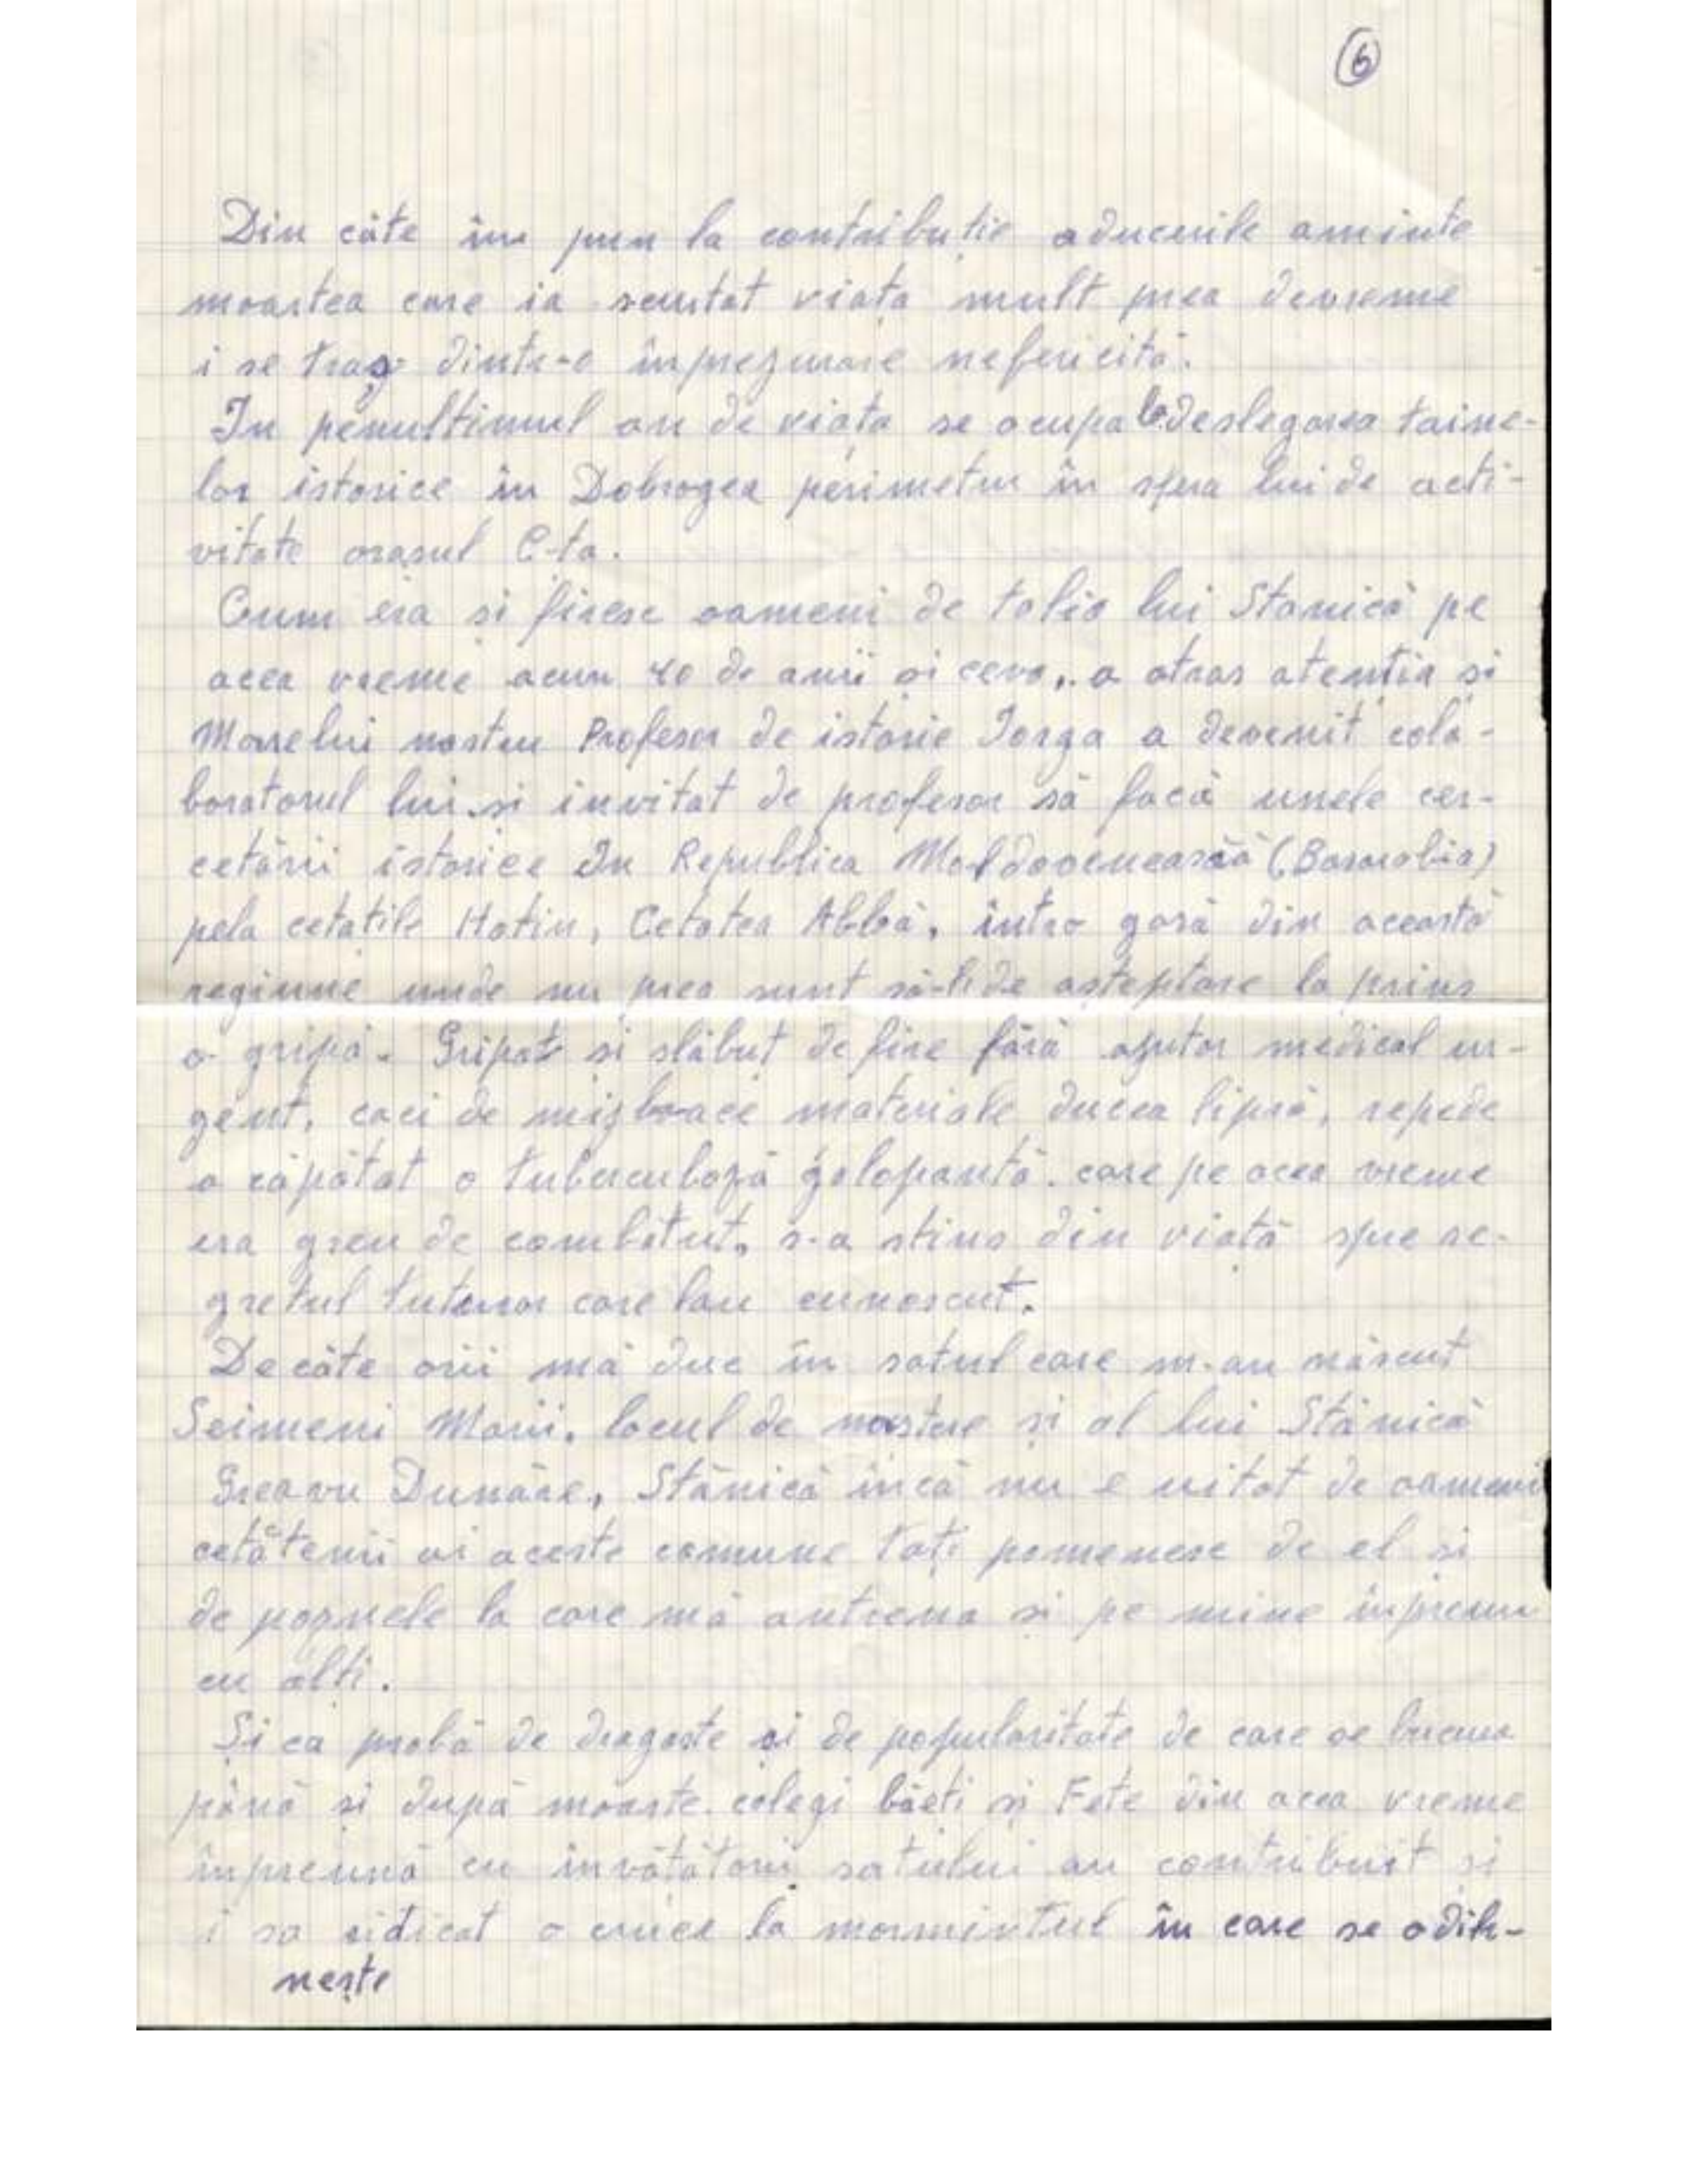 6
Din câte îm pun la contribuție aducerile aminte
moartea care ia scurtat viața mult prea devreme
i se trag dintr-o împrejurare nefericită.
In penultimul an de viața se ocupa la deslegarea taine-
lor istorice în Dobrogea perimetru în sfera lui de acti-
vitate orașul C-ta.
Cum era și firesc oameni de talia lui Stanică pe
acea vreme acum 40 de anii și ceva, a atras atenția și
Marelui nostru Profesor de istorie Iorga a devenit cola-
boratorul lui și invitat de profesor să facă unele cer-
cetării istorice In Republica Moldovenească (Basarabia)
pela cetatile Hotin, Cetatea Albbă, intro gară din această
regiune unde nu prea sunt să-li de asteptare la prins
o gripă. Gripat si slăbuț de fire fără ajutor medical ur-
gent, caci de mijloace materiale ducea lipsă, repede
a căpătat o tuberculoză galopantă. care pe acea vreme
era greu de combătut, s-a stins din viață spre re-
gretul tuturor care lau cunoscut.
De câte orii mă duc în satul care m-au născut
Seimeni Marii. locul de nastere și al lui Stănică
Grearu Dunăre, Stănică încă nu e uitat de oameni
cetătenii ai aceste comune toți pomenesc de el și
de poznele la care mă antrena și pe mine inpreuna
cu alti.
Și ca probă de dragoste și de popularitate de care se bucura
până și după moarte colegi băeti și Fete din acea vreme
împreună cu invătătorii satului au contribuit și
i sa ridicat o cruce la mormintul în care se odih-
nește